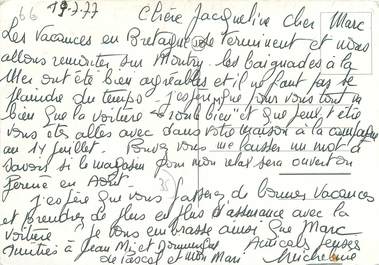 66 19-7-77 Chère Jacqueline cher Marc
Les Vacances en Bretagne se terminent et nous
allons remonter sur Montry. les baignades à la
Mer ont été bien agréables et il ne faut pas se
plaindre du temps. J'espère que pour vous tout va
bien que la voiture "roule bien" et que peut être
vous êtes allés avec dans votre maison à la campagne
au 14 juillet. Pouvez vous me laisser un mot à
savoir si le magasin pour mon relais sera ouvert ou
fermé en Août.
J'espère que vous passerez de bonnes Vacances
et prendrez de plus en plus d'assurance avec la
voiture. Je vous embrasse ainsi que Marc
Amitiés à Jean Mi et Dominique Amicales pensées
de Pascal et mon Mari Micheline